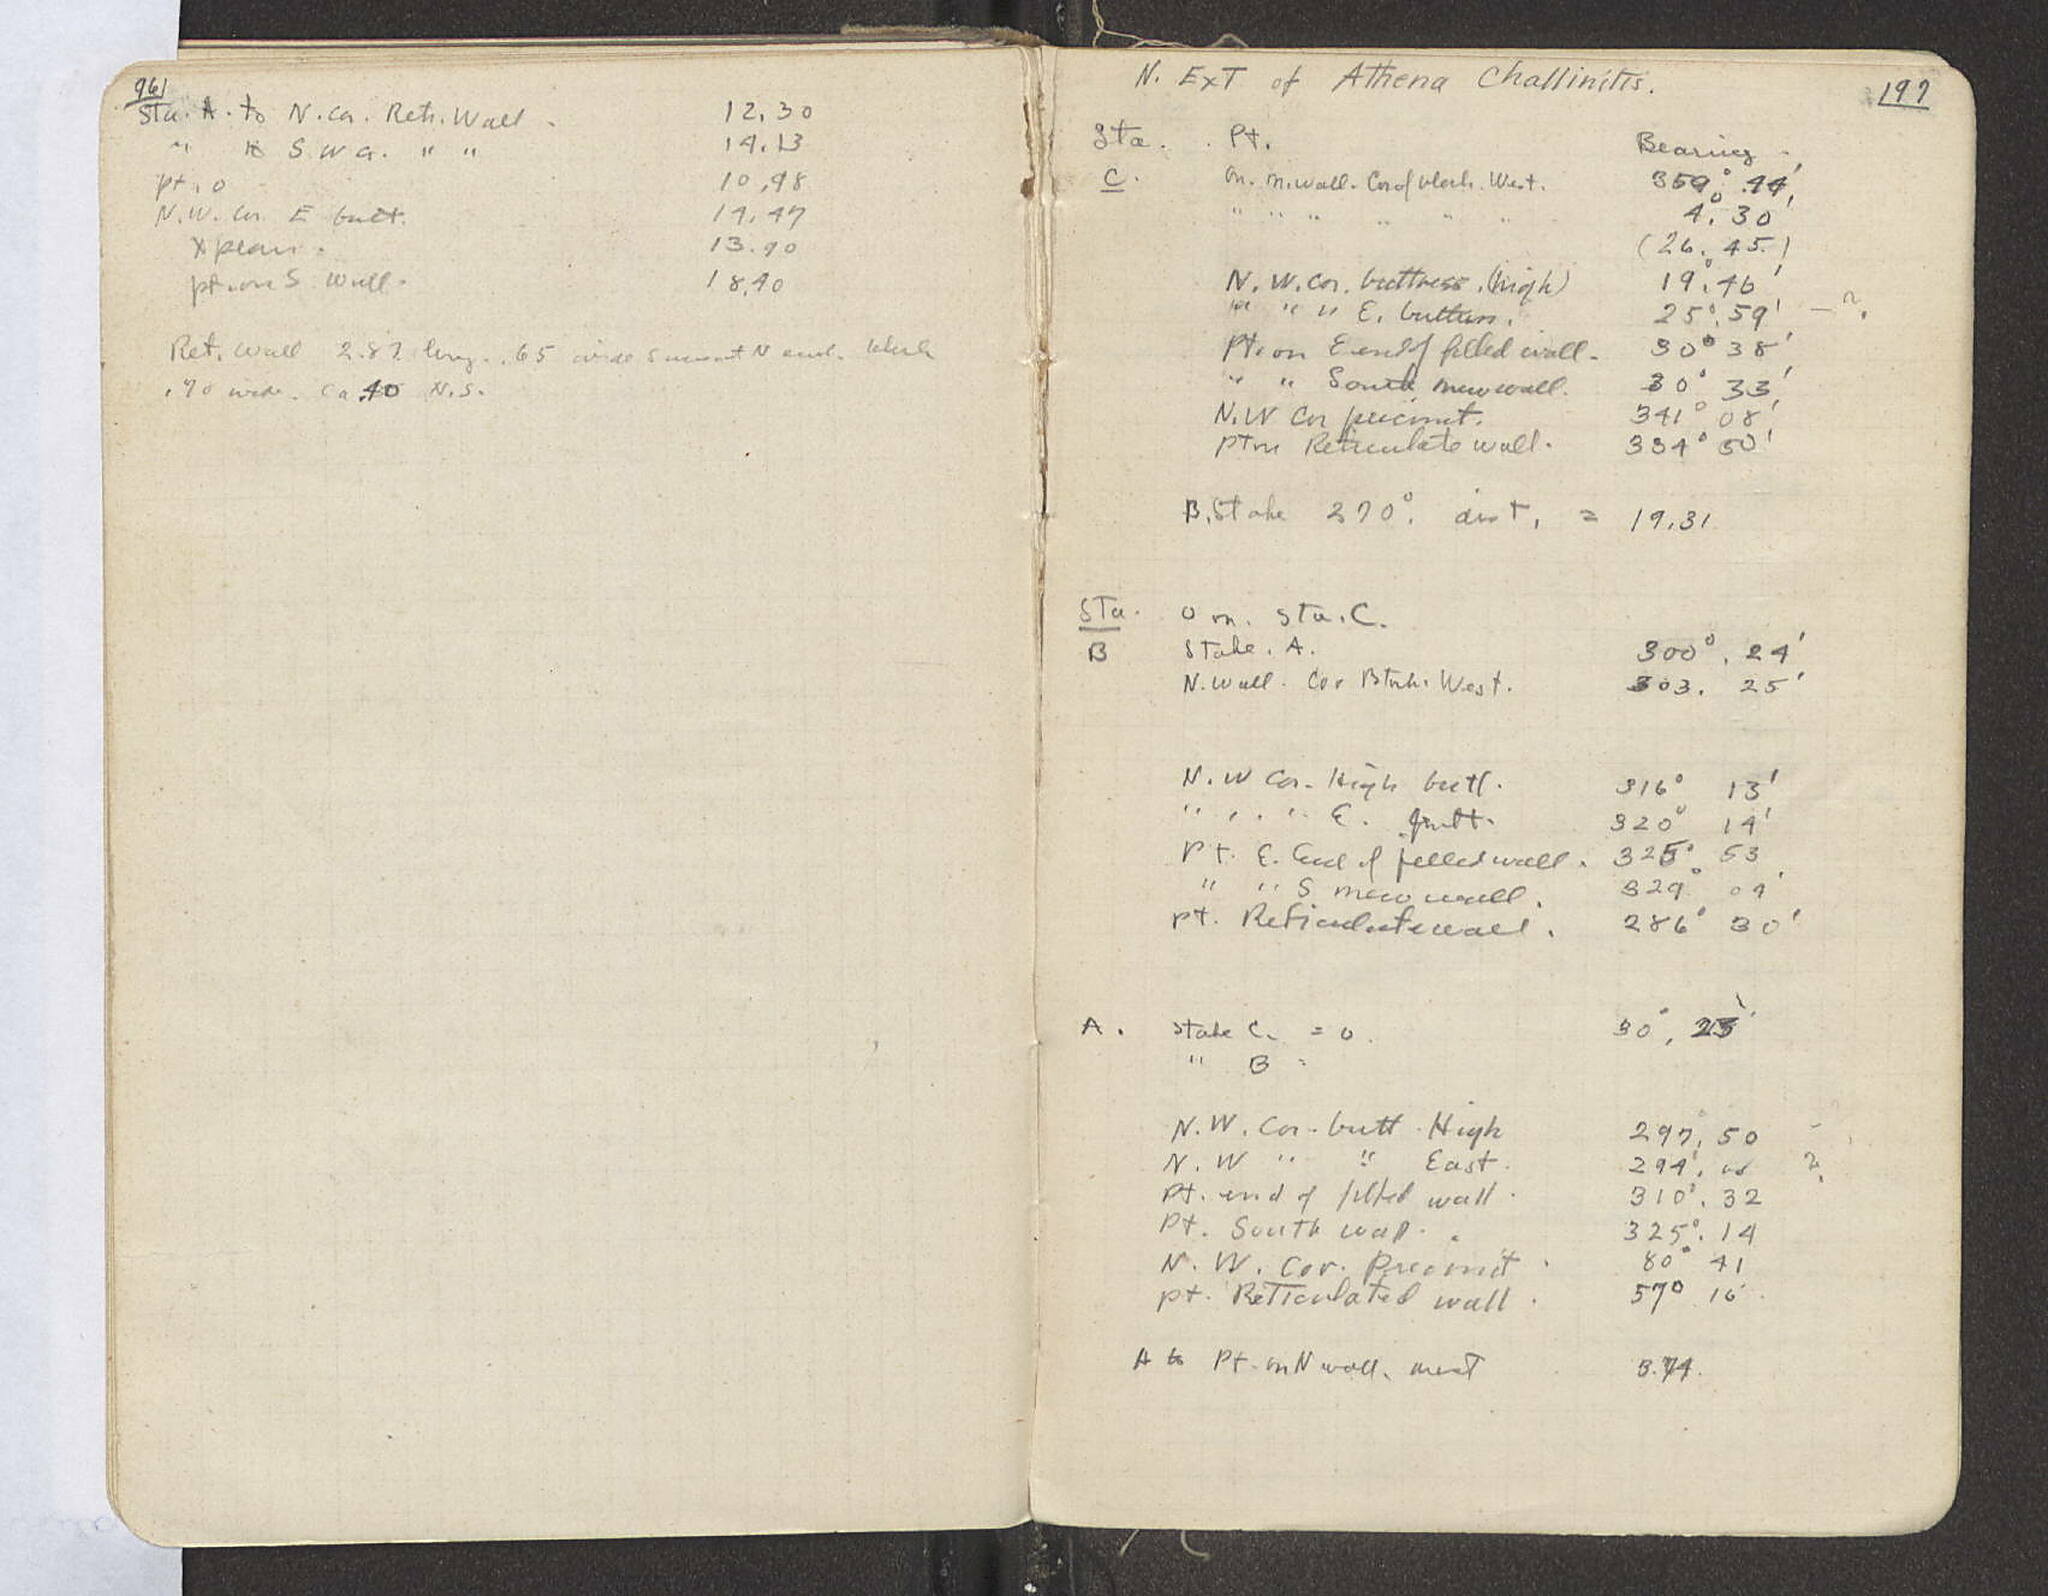 196
Sta. A. to N. Cor. Retr. Wall. 12.30
" to S.W Cr. " " 14.13
pt. o 10.98
N.W. Cor. E butt. 14.47
X plan. 13.90
pt. on S. Wall. 18.40
Ret. Wall 2.87 long. .65 wide S N end.
.70 wide. Ca .40 N.S.
N. ExT of Athena Challinitis. 197
Sta. Pt. Bearing
C. on. n. wall. Cor of block. West. 359° 44'
" " " " " " 4° 30'
(26. 45.)
N. W. Cor. buttress. (high) 19° 46'
" " " E. buttress. 25° 59' — ?
Pt. on E end of filled wall. 30° 38'
" " South new wall. 30° 33'
N.W Cor precinct. 341° 08'
pt on Reticulate wall. 334° 50'
B. Stake 270°. dist. = 19.31
Sta. o on. Sta. C.
B Stake. A. 300°. 24'
N. Wall. Cor Block. West. 303. 25'
N. W Cor. High butt. 316° 13'
" " " E. butt. 320° 14'
Pt. E. End of filled wall. 325° 53
" " S new wall. 329° 04'
pt. Reticulate wall. 286° 30'
A. Stake C. = o. 30°, 23'
" B =
N. W. Cor. butt. High 297°. 50
N. W " " East. 294°. ?
Pt. end of filled wall. 310°. 32
Pt. South wall. 325°. 14
N. W. Cor. Precinct. 80° 41
pt. Reticulated wall. 57° 16'
A to Pt. on N wall. west 3.74.